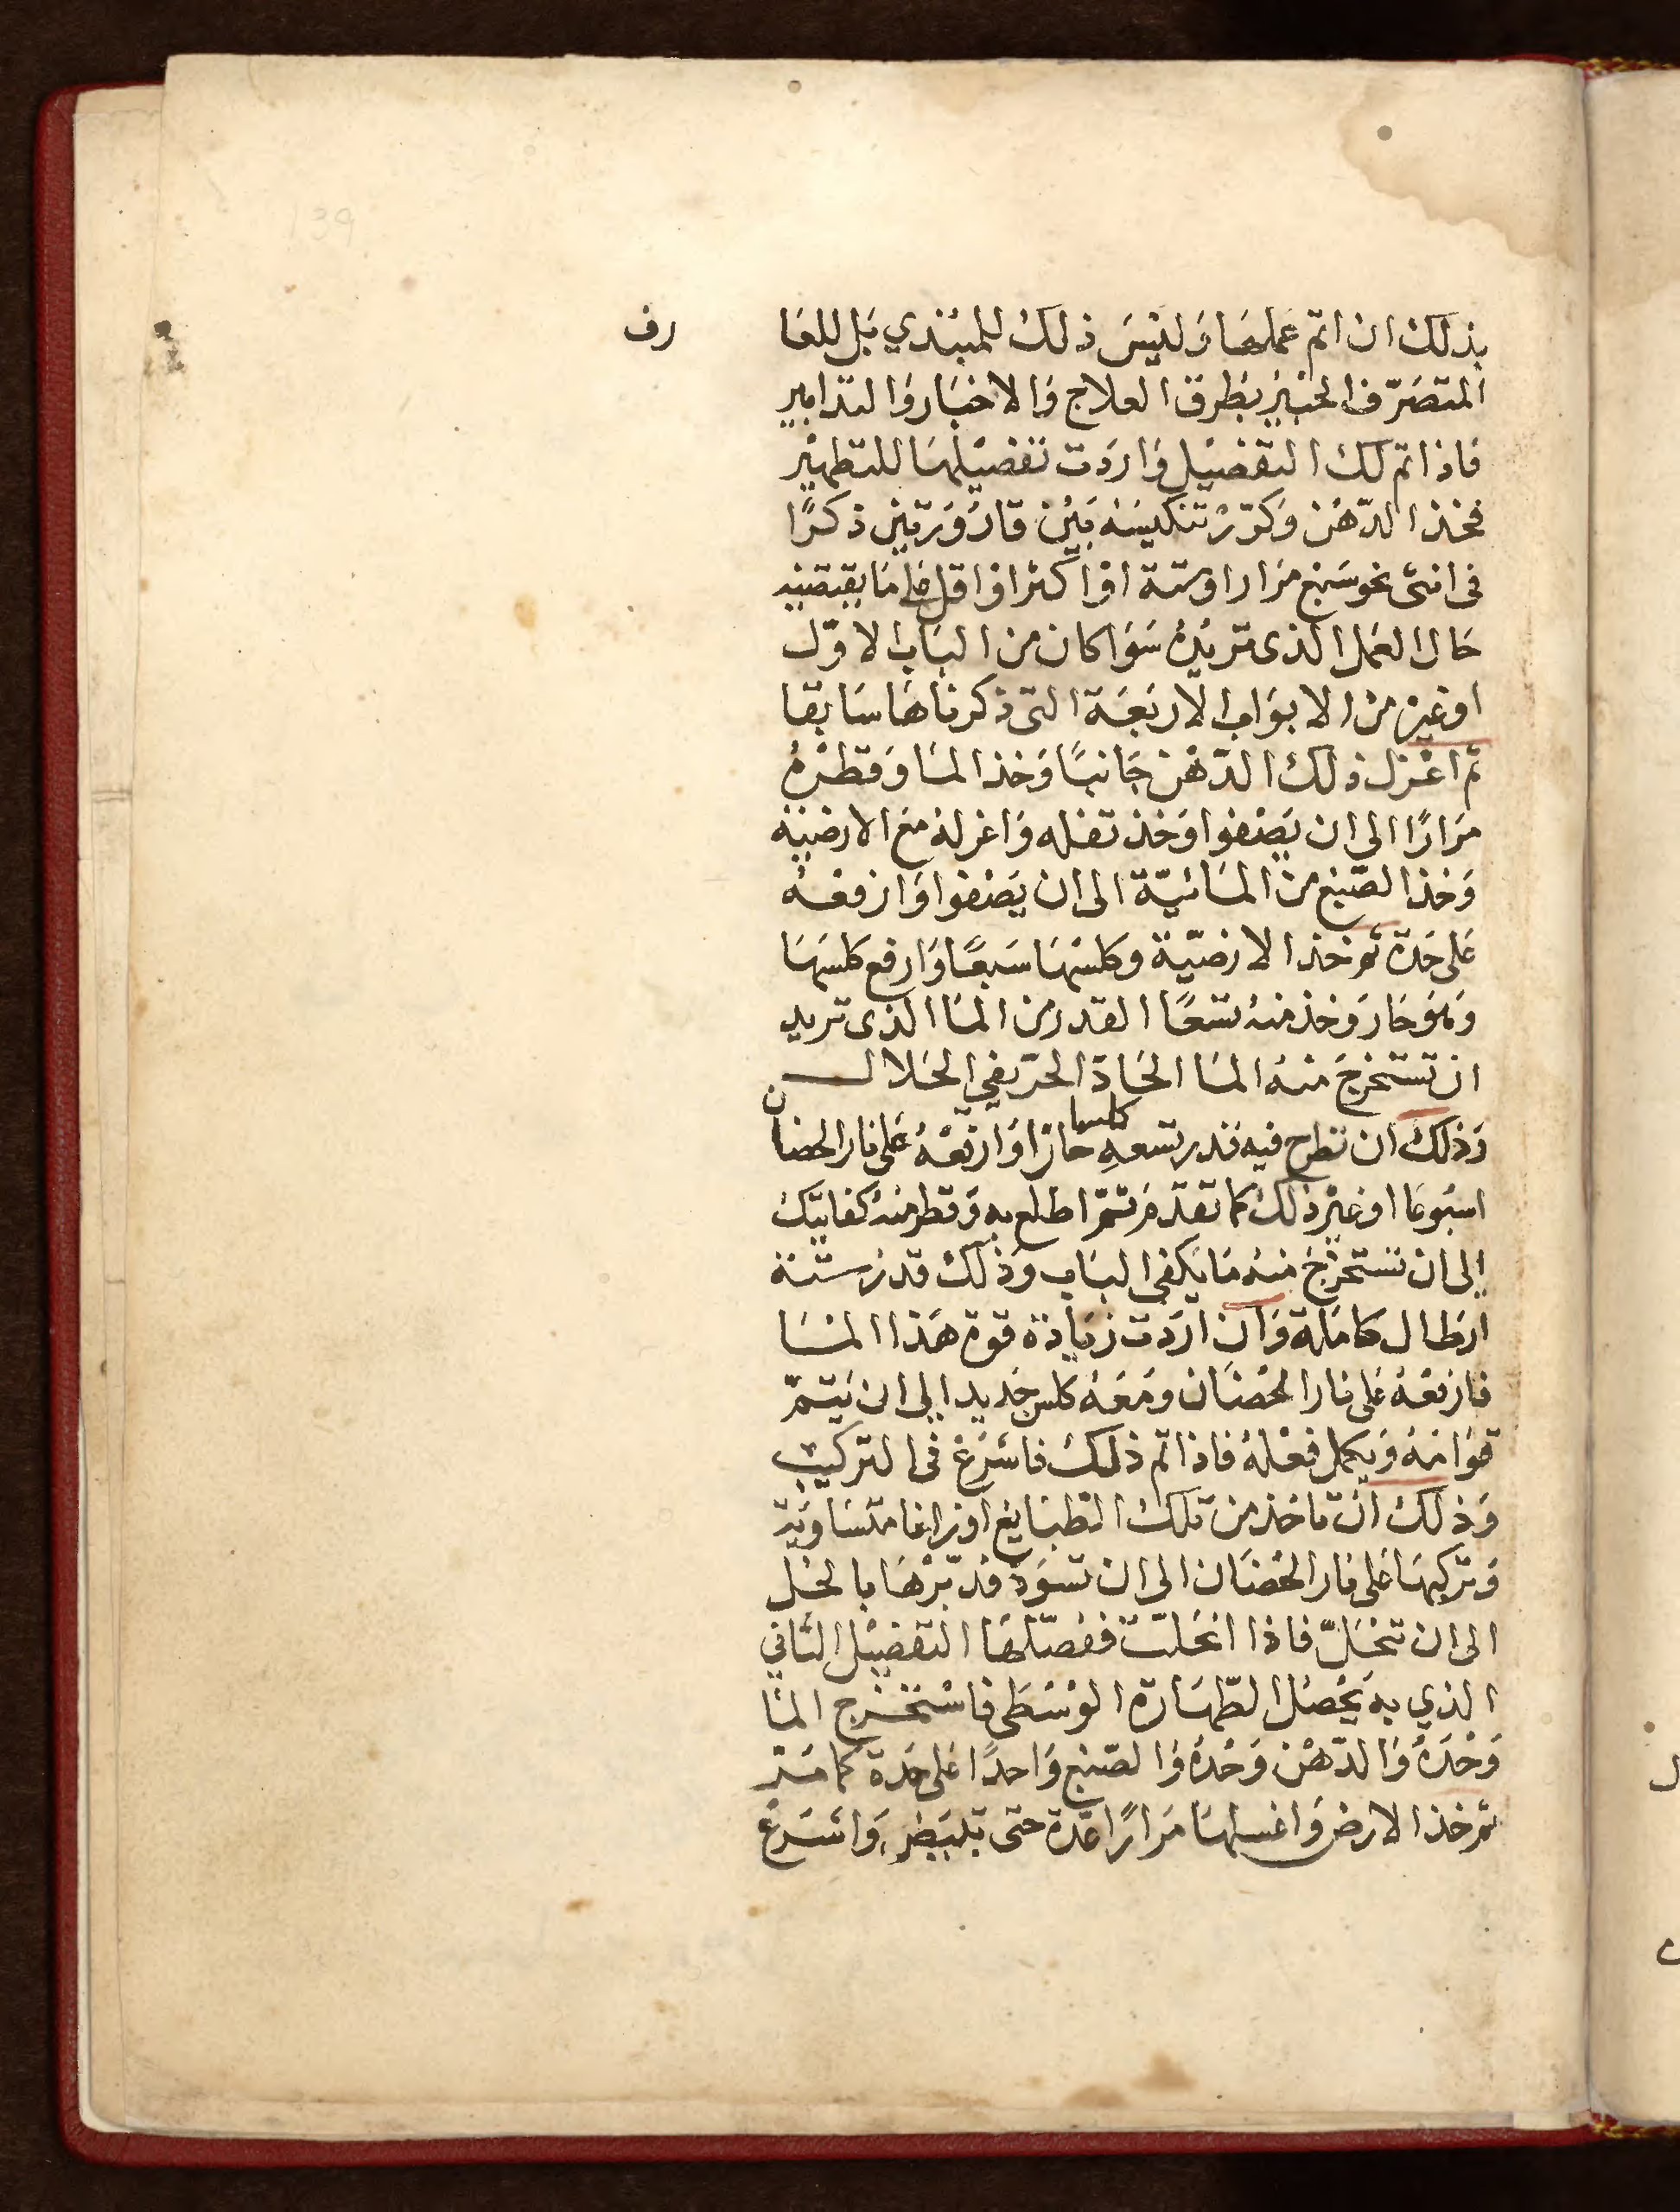 بذلك ان اتم عملها وليس ذلك للمبتدي بل للعا رف
المتصرف الخبير بطرق العلاج والاختبار والتدابير
فاذا تم لك التفصيل واردت تفصيلها للتطهير
فخذ الدهن وكرر تنكيسه بين قارورتين ذكرا
فى انثى نحو سبع مرار او ستة او اكثر او اقل على ما يقتضيه
حال العمل الذى تريده سوا كان من الباب الاول
او غيره من الابواب الاربعة التى ذكرناها سابقا
ثم اعزل ذلك الدهن جانبا وخذ الما وقطره
مرارا الى ان يصفوا وخذ تفله واعزله مع الارضية
وخذ الصبغ من المائية الى ان يصفوا وارفعه
على حدة ثم خذ الارضية وكلسها سبعا وارفع كلسها
وهو حار وخذ منه تسعا القدر من الما الذى تريد
ان تستخرج منه الما الحاد الحريفي الحلال
وذلك ان تطرح فيه قدر تسعه كلسا حارا وارفعه على نار الحضان
اسبوعا او غير ذلك كما تقدم ثم اطلع به وقطر منه كفايتك
الى ان تستخرج منه ما يكفى الباب وذلك قدر ستة
ارطال كاملة وان اردت زيادة قوة هذا الما
فارفعه على نار الحضان ومعه كلس جديد الى ان يتم
قوامه ويكمل فعله فاذا تم ذلك فاشرع فى التركيب
وذلك ان تاخذ من تلك الطبايع اوزانا متساوية
وتركبها على نار الحضان الى ان تسود فدبرها بالخل
الى ان تنحل فاذا انحلت ففصلها التفصيل الثانى
الذي به يحصل الطهارة الوسطى فاستخرج الما
وحده والدهن وحده والصبغ واحدا على حدة كما مر
ثم خذ الارض واغسلها مرارا عدة حتى تبيض واشرع